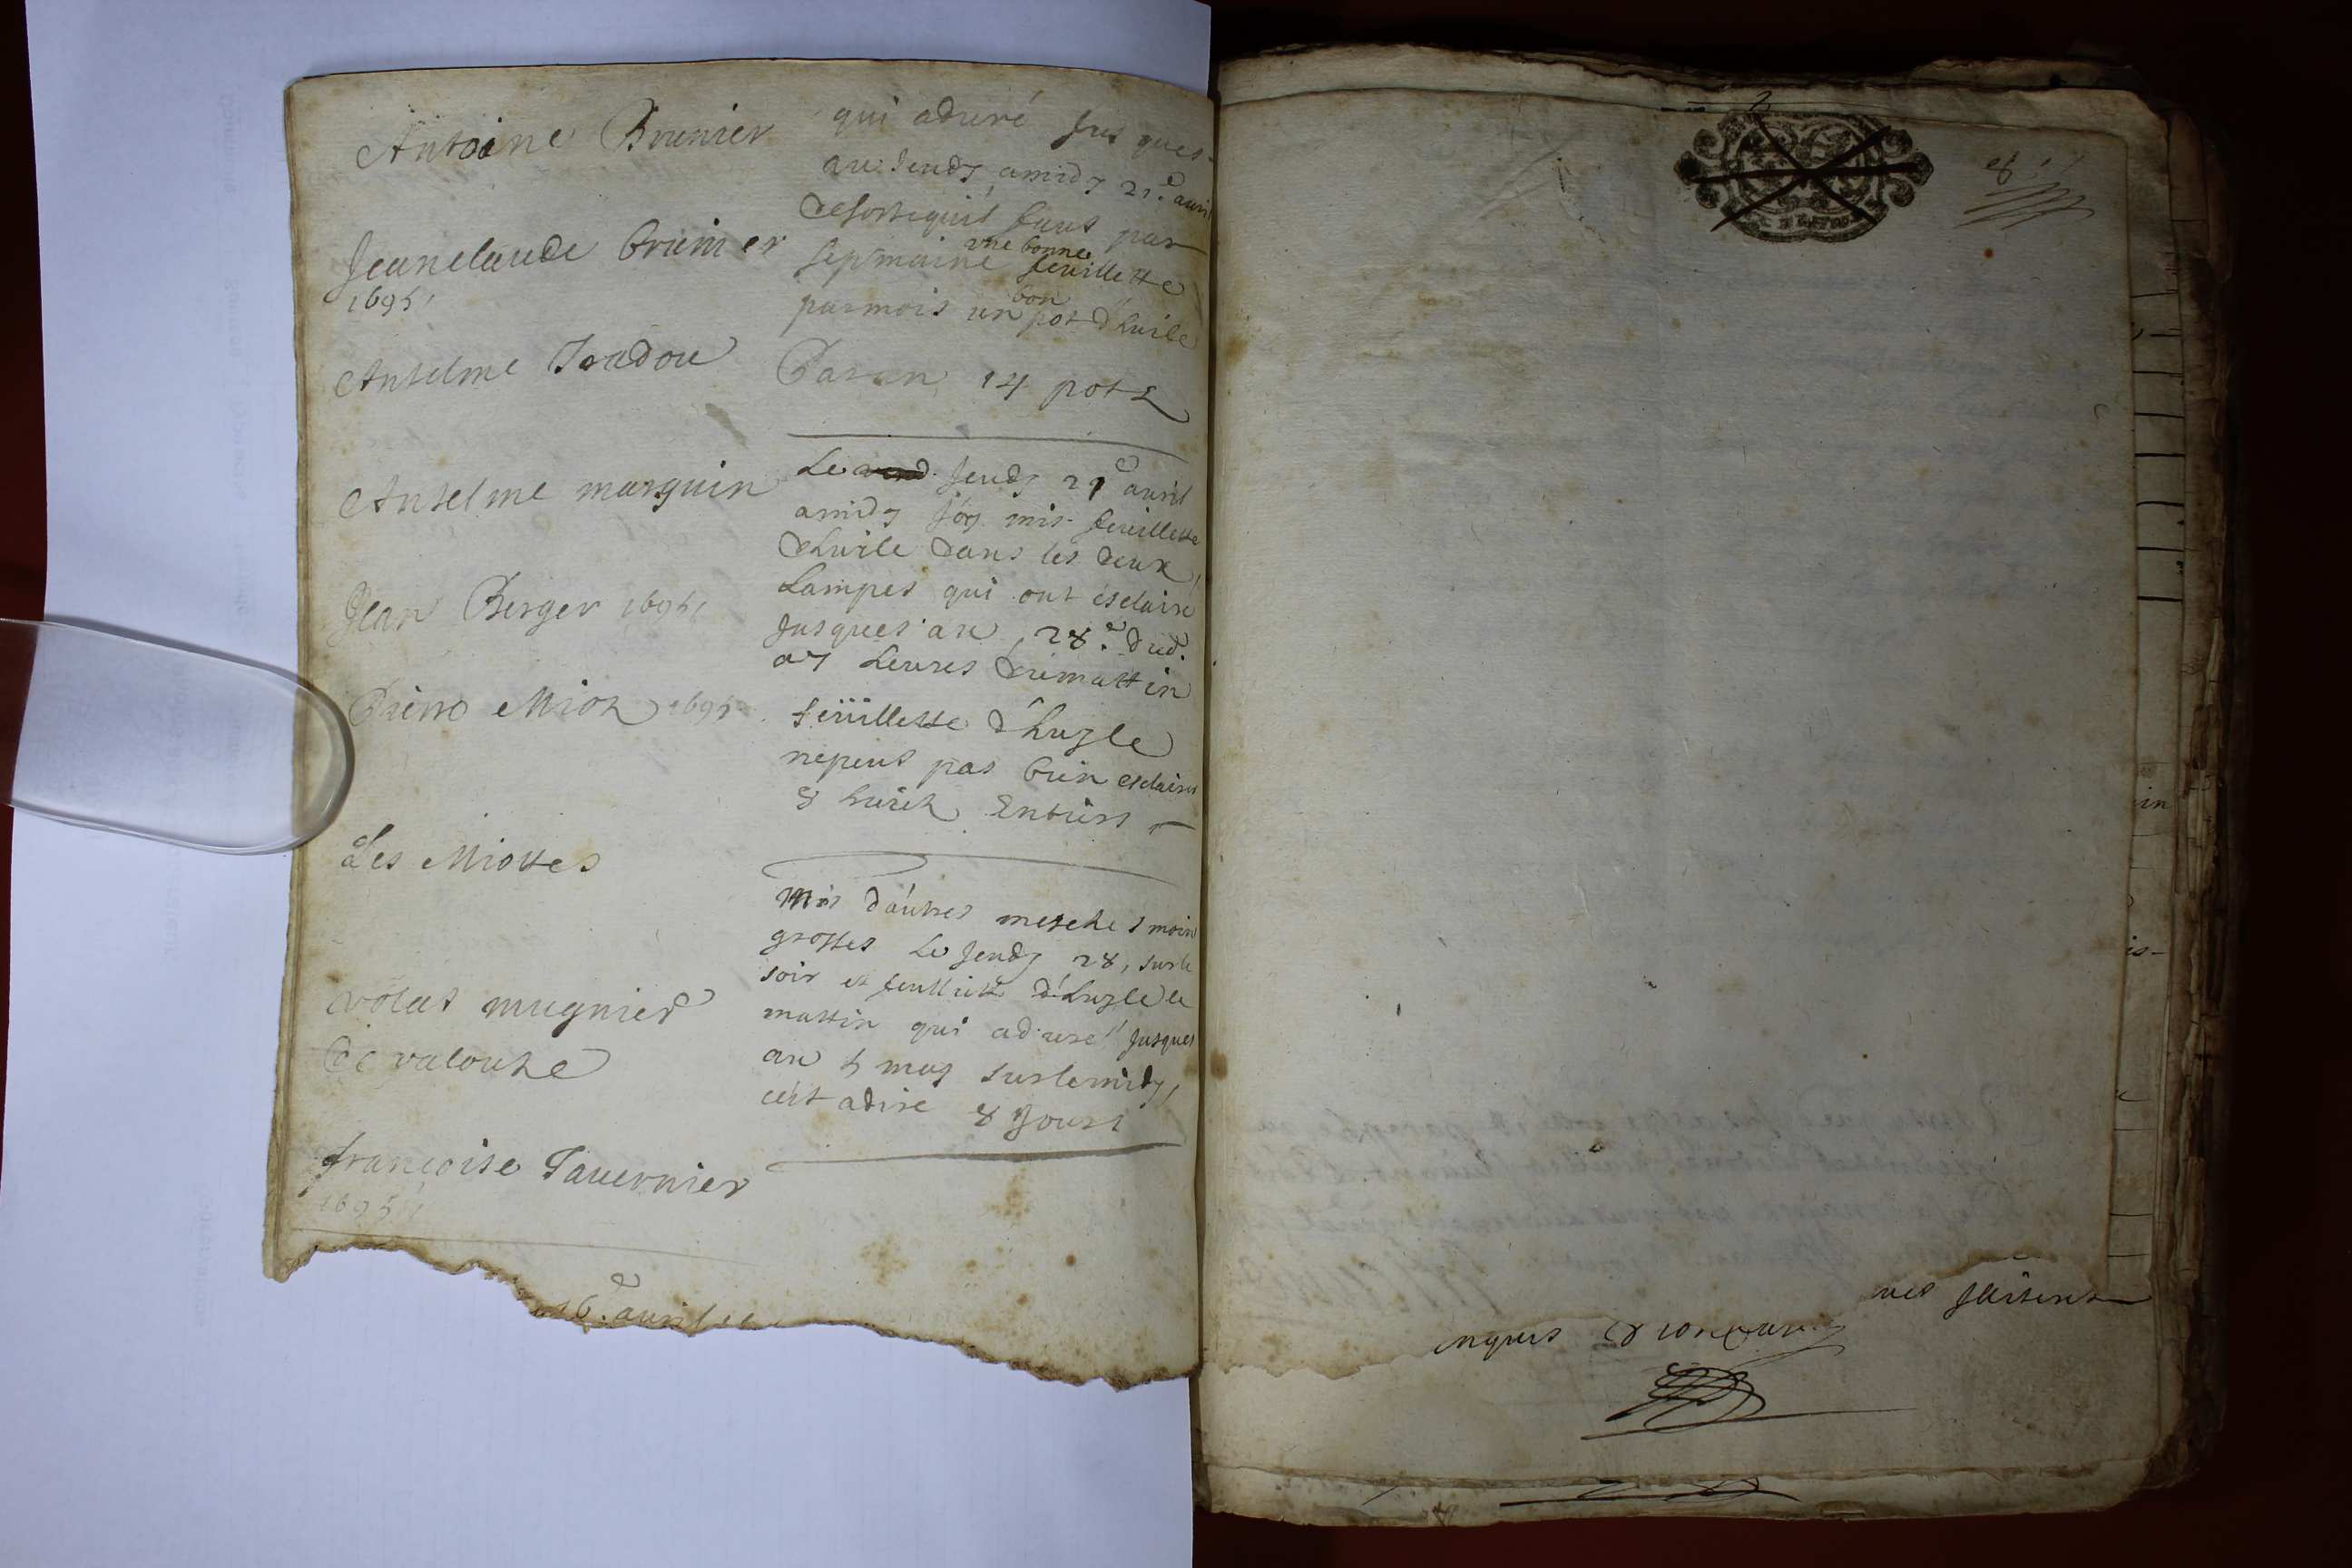 Antoine Brunier
Jeanclaude brunier
1695
Anselme Tradou
Anselme marguin
Jean Berger 1695
Pierre Mioz 1695
Les Miottes
volat mugnier
de valouze
françoise Tavernier
1695
6.e avril
qui aduré Jus ques
au Jeudy amidy 21.e avril
desortequil faut par
sepmaine une bonne feuillette
parmois un bon pot dhuile
Par an 14 pots
Le Jeudy 21e avril
amidy j'ay mis feuillette
dhuile dans les deux
Lampes qui ont esclairé
Jusques au 28.e dud.
a 7 heures dumattin
feüillette d'huyle
nepeut pas bien esclairer
8 huict Entiers
Mis d'autres mesches moin
grosses Le Jeudy 28, surle
soir et feuillette d'huyle le
mattin qui aduré Jusques
au 5 may surlemidy,
cest adire 8 Jours
requis &